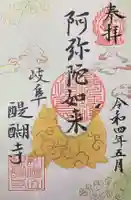 奉拝
令和四年五月
阿弥陀如来
岐阜
醍醐寺